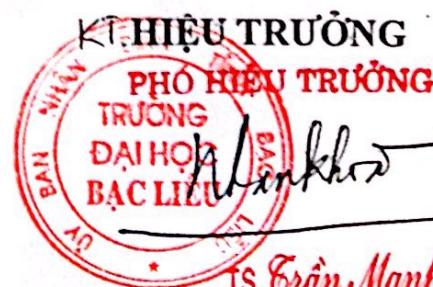 KT. HIỆU TRƯỞNG
PHÓ HIỆU TRƯỞNG
ỦY BAN NHÂN BẠC LIÊU
TRƯỜNG
ĐẠI HỌC
BẠC LIÊU
TS Trần Mạnh